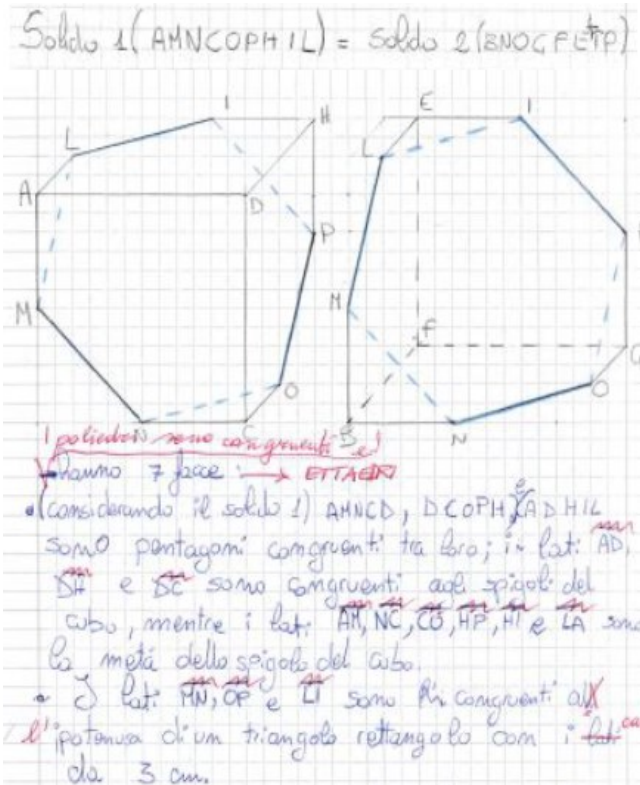 Solido 1 (AMNCOPHIL) = Solido 2 (BNOGFE P)
I H E I
L L
A D
P
M M
F G
O O
N C B N
I poliedri sono congruenti e
hanno 7 facce : → ETTAEDRI
• (considerando il solido 1) AMNCD, DCOPH e ADHIL
sono pentagoni congruenti tra loro; i lati AD,
DH e DC sono congruenti agli spigoli del
cubo, mentre i lati AM, NC, CO, HP, HI e LA sono
la metà dello spigolo del cubo.
• I lati MN, OP e LI sono congruenti al
l'ipotenusa di un triangolo rettangolo con i lati ca
da 3 cm.